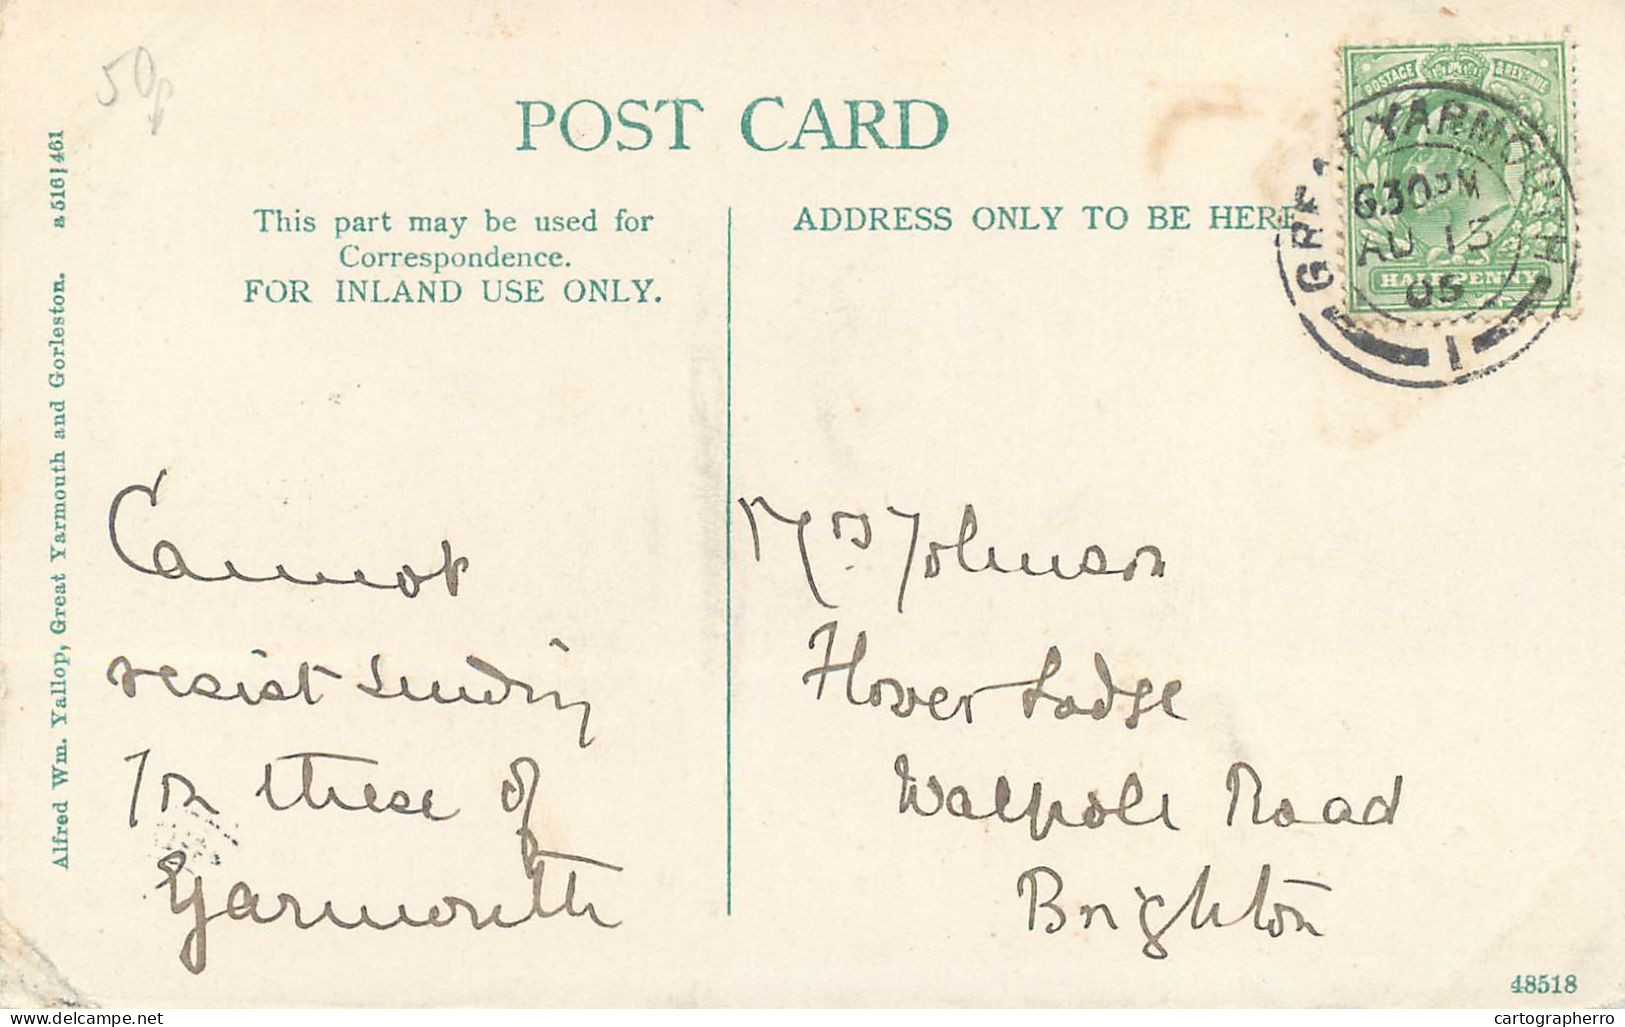 50p
POST CARD
This part may be used for
Correspondence.
FOR INLAND USE ONLY.
ADDRESS ONLY TO BE HERE
POSTAGE & REVENUE
HALFPENNY
GREAT YARMOUTH
630 PM
AU 13
05
1
Alfred Wm. Yallop, Great Yarmouth and Gorleston. a 516 | 461
Cannot
resist sending
you these of
Yarmouth
Mrs Tolmson
Hover Lodge
Walpole Road
Brighton
48518
delcampe.net
cartographerro